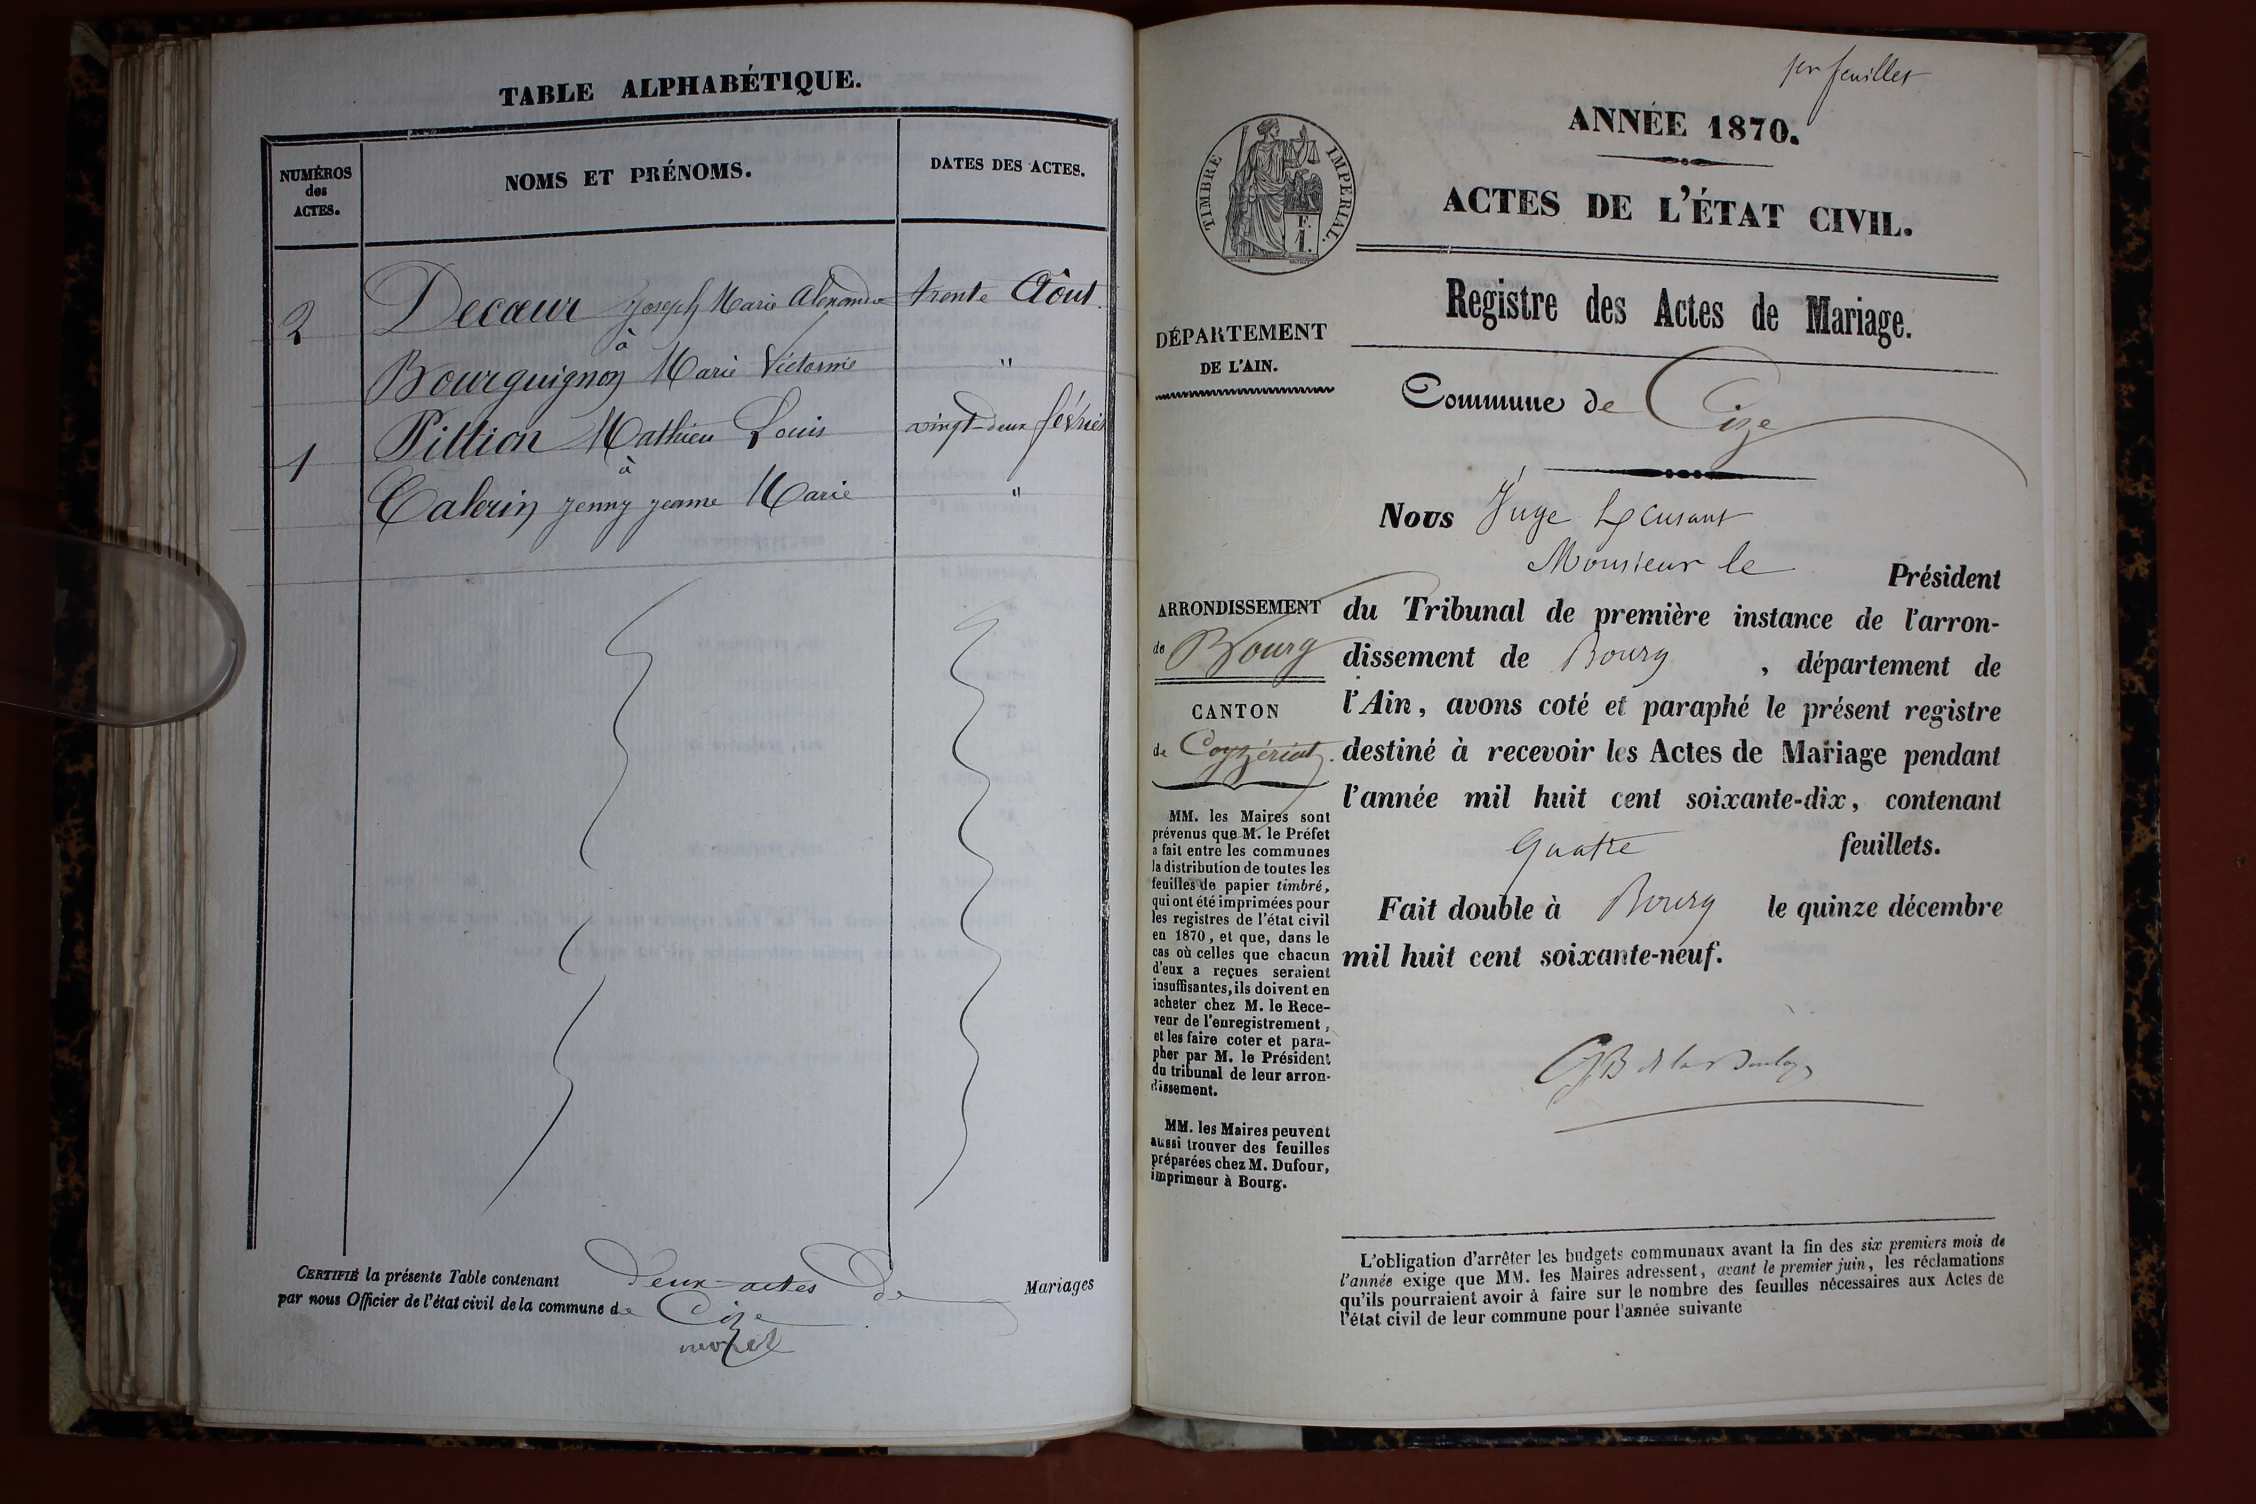 TABLE ALPHABÉTIQUE.
NUMÉROS
des
ACTES.
NOMS ET PRÉNOMS.
DATES DES ACTES.
2 Decœur Joseph Marie Alexandre trente Août
à
Bourguignon Marie Victorine "
1 Pittion Mathieu Louis vingt-deux février
à
Jenny Jeanne Marie "
CERTIFIÉ la présente Table contenant deux actes de Mariages
par nous Officier de l'état civil de la commune de Cize
1er feuillet
ANNÉE 1870.
TIMBRE IMPERIAL.
F.
1.
ACTES DE L'ÉTAT CIVIL.
Registre des Actes de Mariage.
DÉPARTEMENT
DE L'AIN.
Commune de Cize
ARRONDISSEMENT
de Bourg
CANTON
de Ceyzériat.
MM. les Maires sont
prévenus que M. le Préfet
a fait entre les communes
la distribution de toutes les
feuilles de papier timbré,
qui ont été imprimées pour
les registres de l'état civil
en 1870, et que, dans le
cas où celles que chacun
d'eux a reçues seraient
insuffisantes, ils doivent en
acheter chez M. le Rece-
veur de l'enregistrement,
et les faire coter et para-
pher par M. le Président
du tribunal de leur arron-
dissement.
MM. les Maires peuvent
aussi trouver des feuilles
préparées chez M. Dufour,
imprimeur à Bourg.
Nous Juge
Monsieur le Président
du Tribunal de première instance de l'arron-
dissement de Bourg, département de
l'Ain, avons coté et paraphé le présent registre
destiné à recevoir les Actes de Mariage pendant
l'année mil huit cent soixante-dix, contenant
quatre feuillets.
Fait double à Bourg le quinze décembre
mil huit cent soixante-neuf.
L'obligation d'arrêter les budgets communaux avant la fin des six premiers mois de
l'année exige que MM. les Maires adressent, avant le premier juin, les réclamations
qu'ils pourraient avoir à faire sur le nombre des feuilles nécessaires aux Actes de
l'état civil de leur commune pour l'année suivante